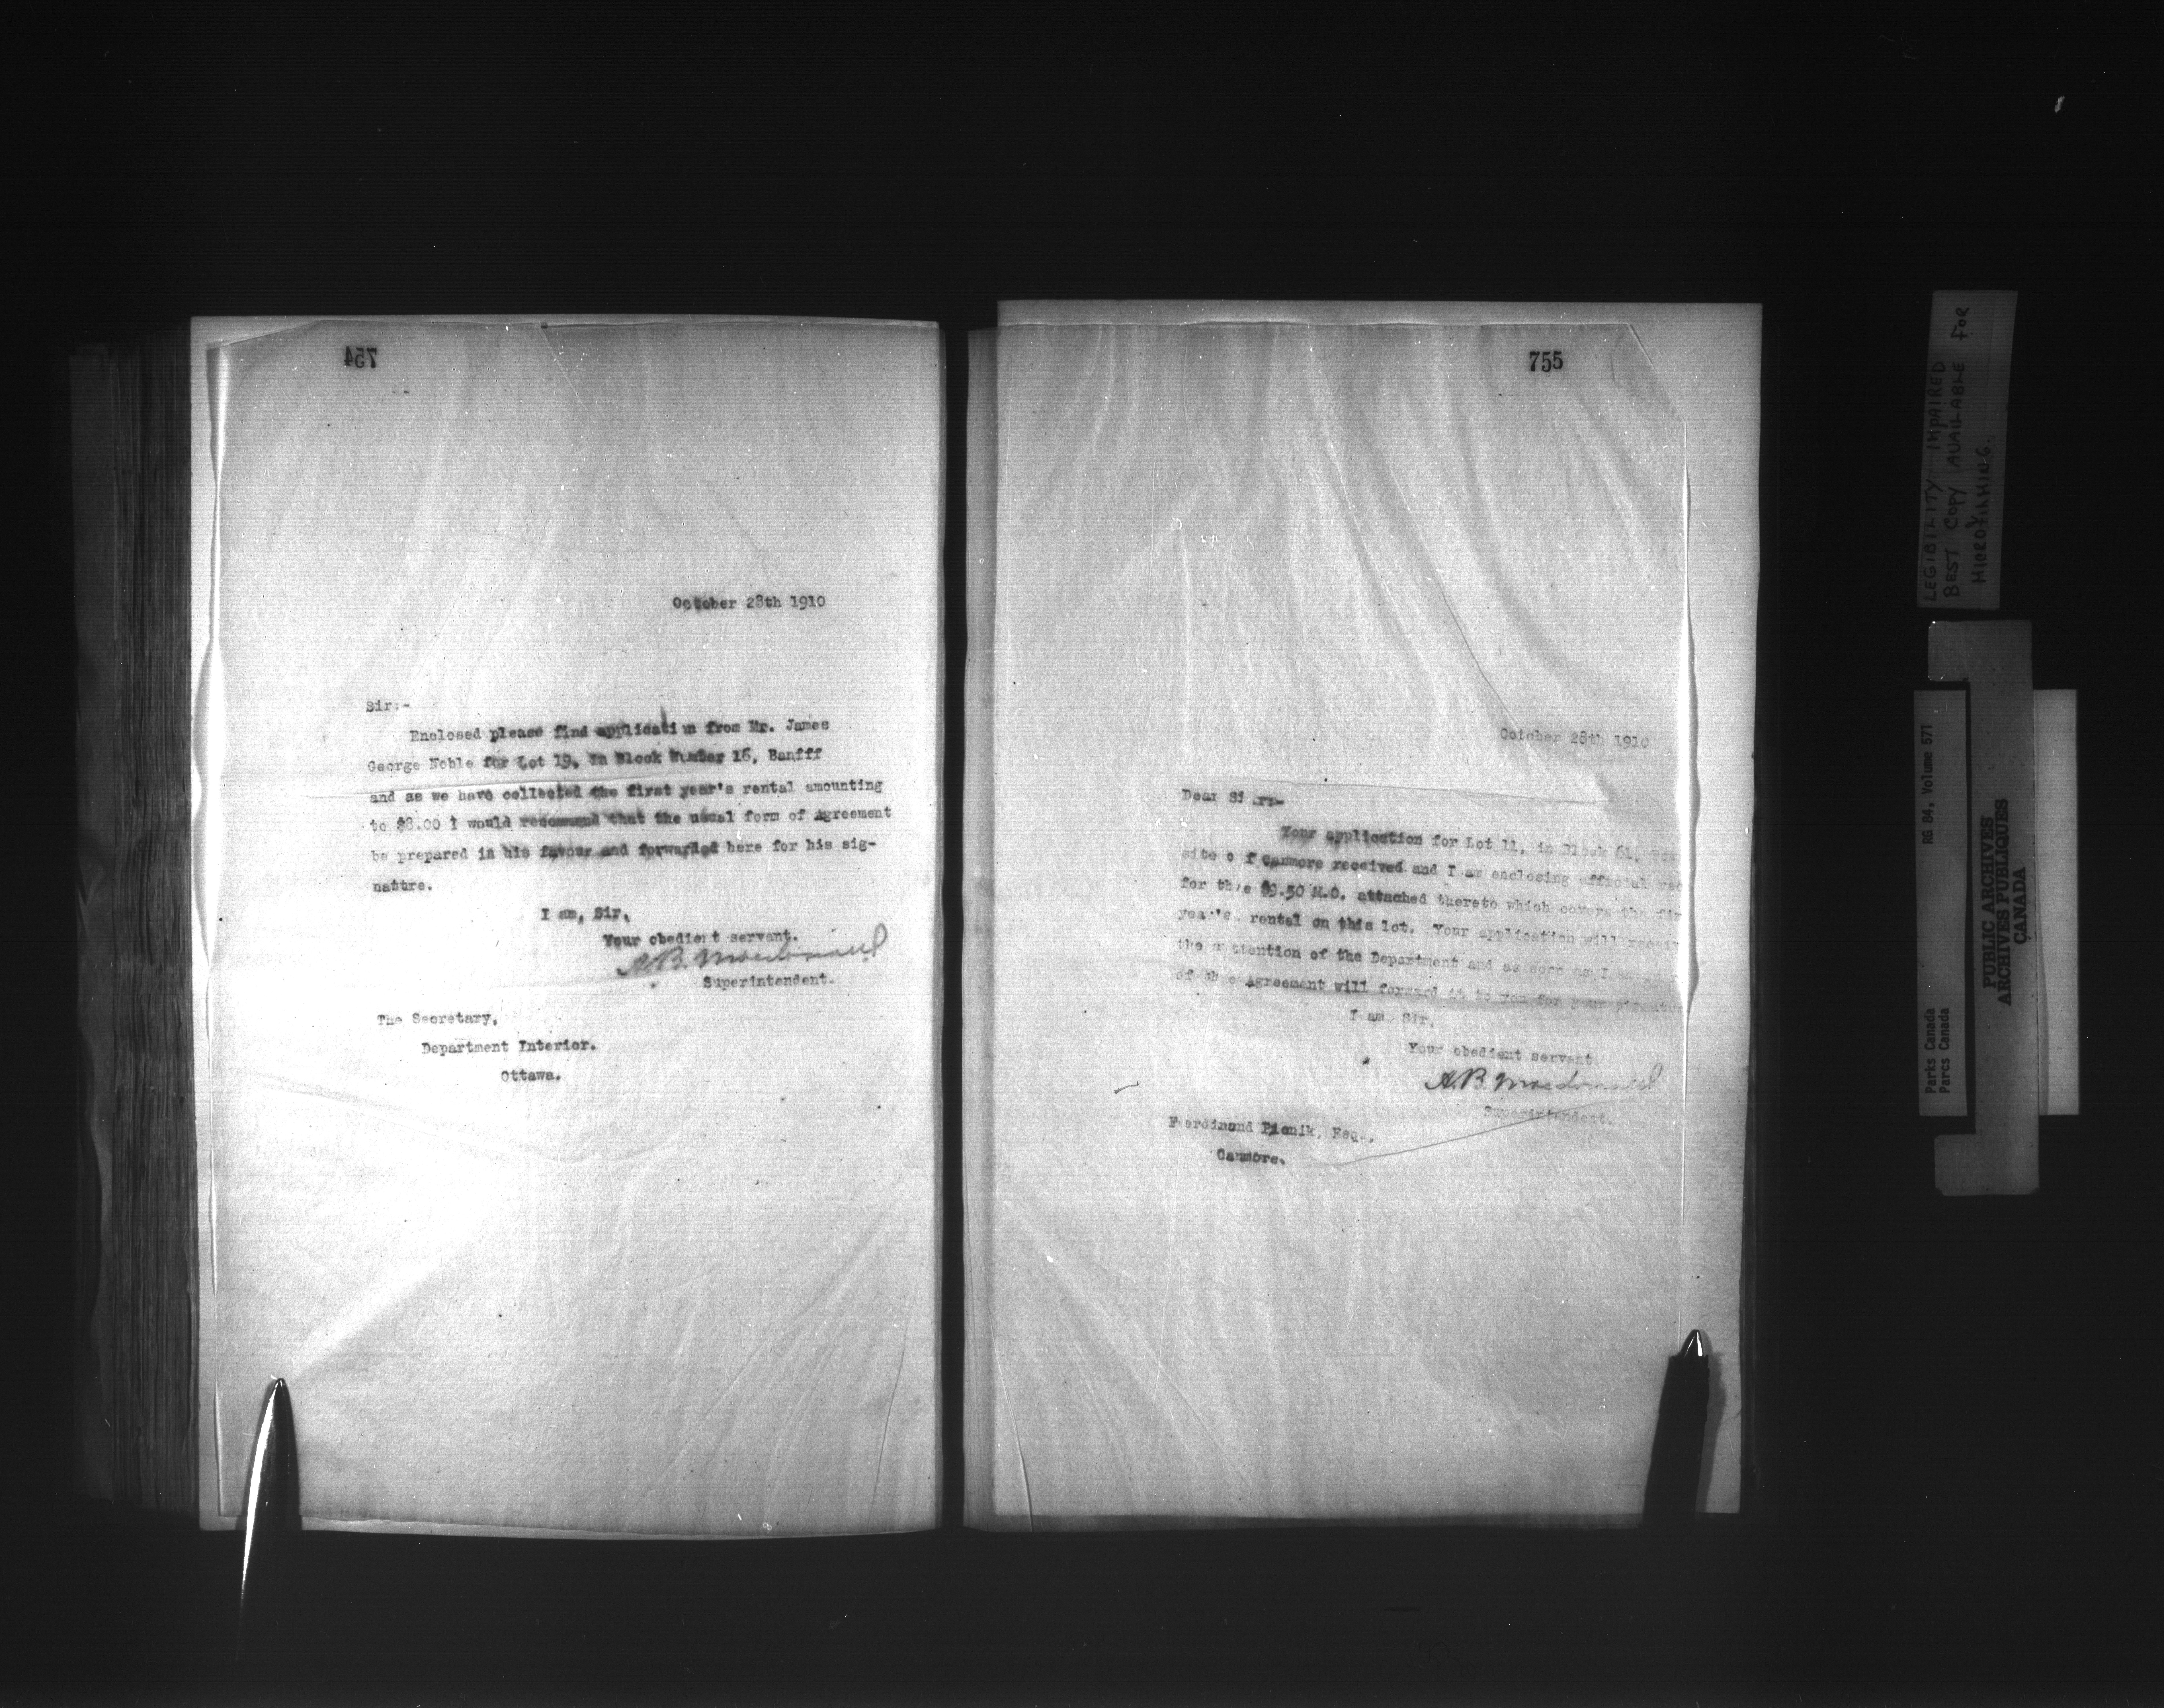 754
October 28th 1910
Sir:-
Enclosed please find application from Mr. James
George Noble for Lot 19, in Block Number 16, Banfff
and as we have collected the first year's rental amounting
to $8.00 I would recommend that the usual form of Agreement
be prepared in his favour and forwarded here for his sig-
nature.
I am, Sir,
Your obedient servant.
A.B. Macdonald
Superintendent.
The Secretary,
Department Interior.
Ottawa.
755
October 28th 1910
Dear Sir:-
Your application for Lot 11, in Block 61,
site of Canmore received and I am enclosing official
for the $9.50 M.O. attached thereto which covers the
year's rental on this lot. Your application will
the attention of the Department and as soon as I
of the Agreement will forward it to you for your
I am Sir,
Your obedient servant.
A.B. Macdonald
Superintendent.
Ferdinand Pienik, Esq.,
Canmore.
LEGIBILITY IMPAIRED
BEST COPY AVAILABLE FOR
MICROFILMING.
RG 84, Volume 571
Parks Canada
Parcs Canada
PUBLIC ARCHIVES
ARCHIVES PUBLIQUES
CANADA